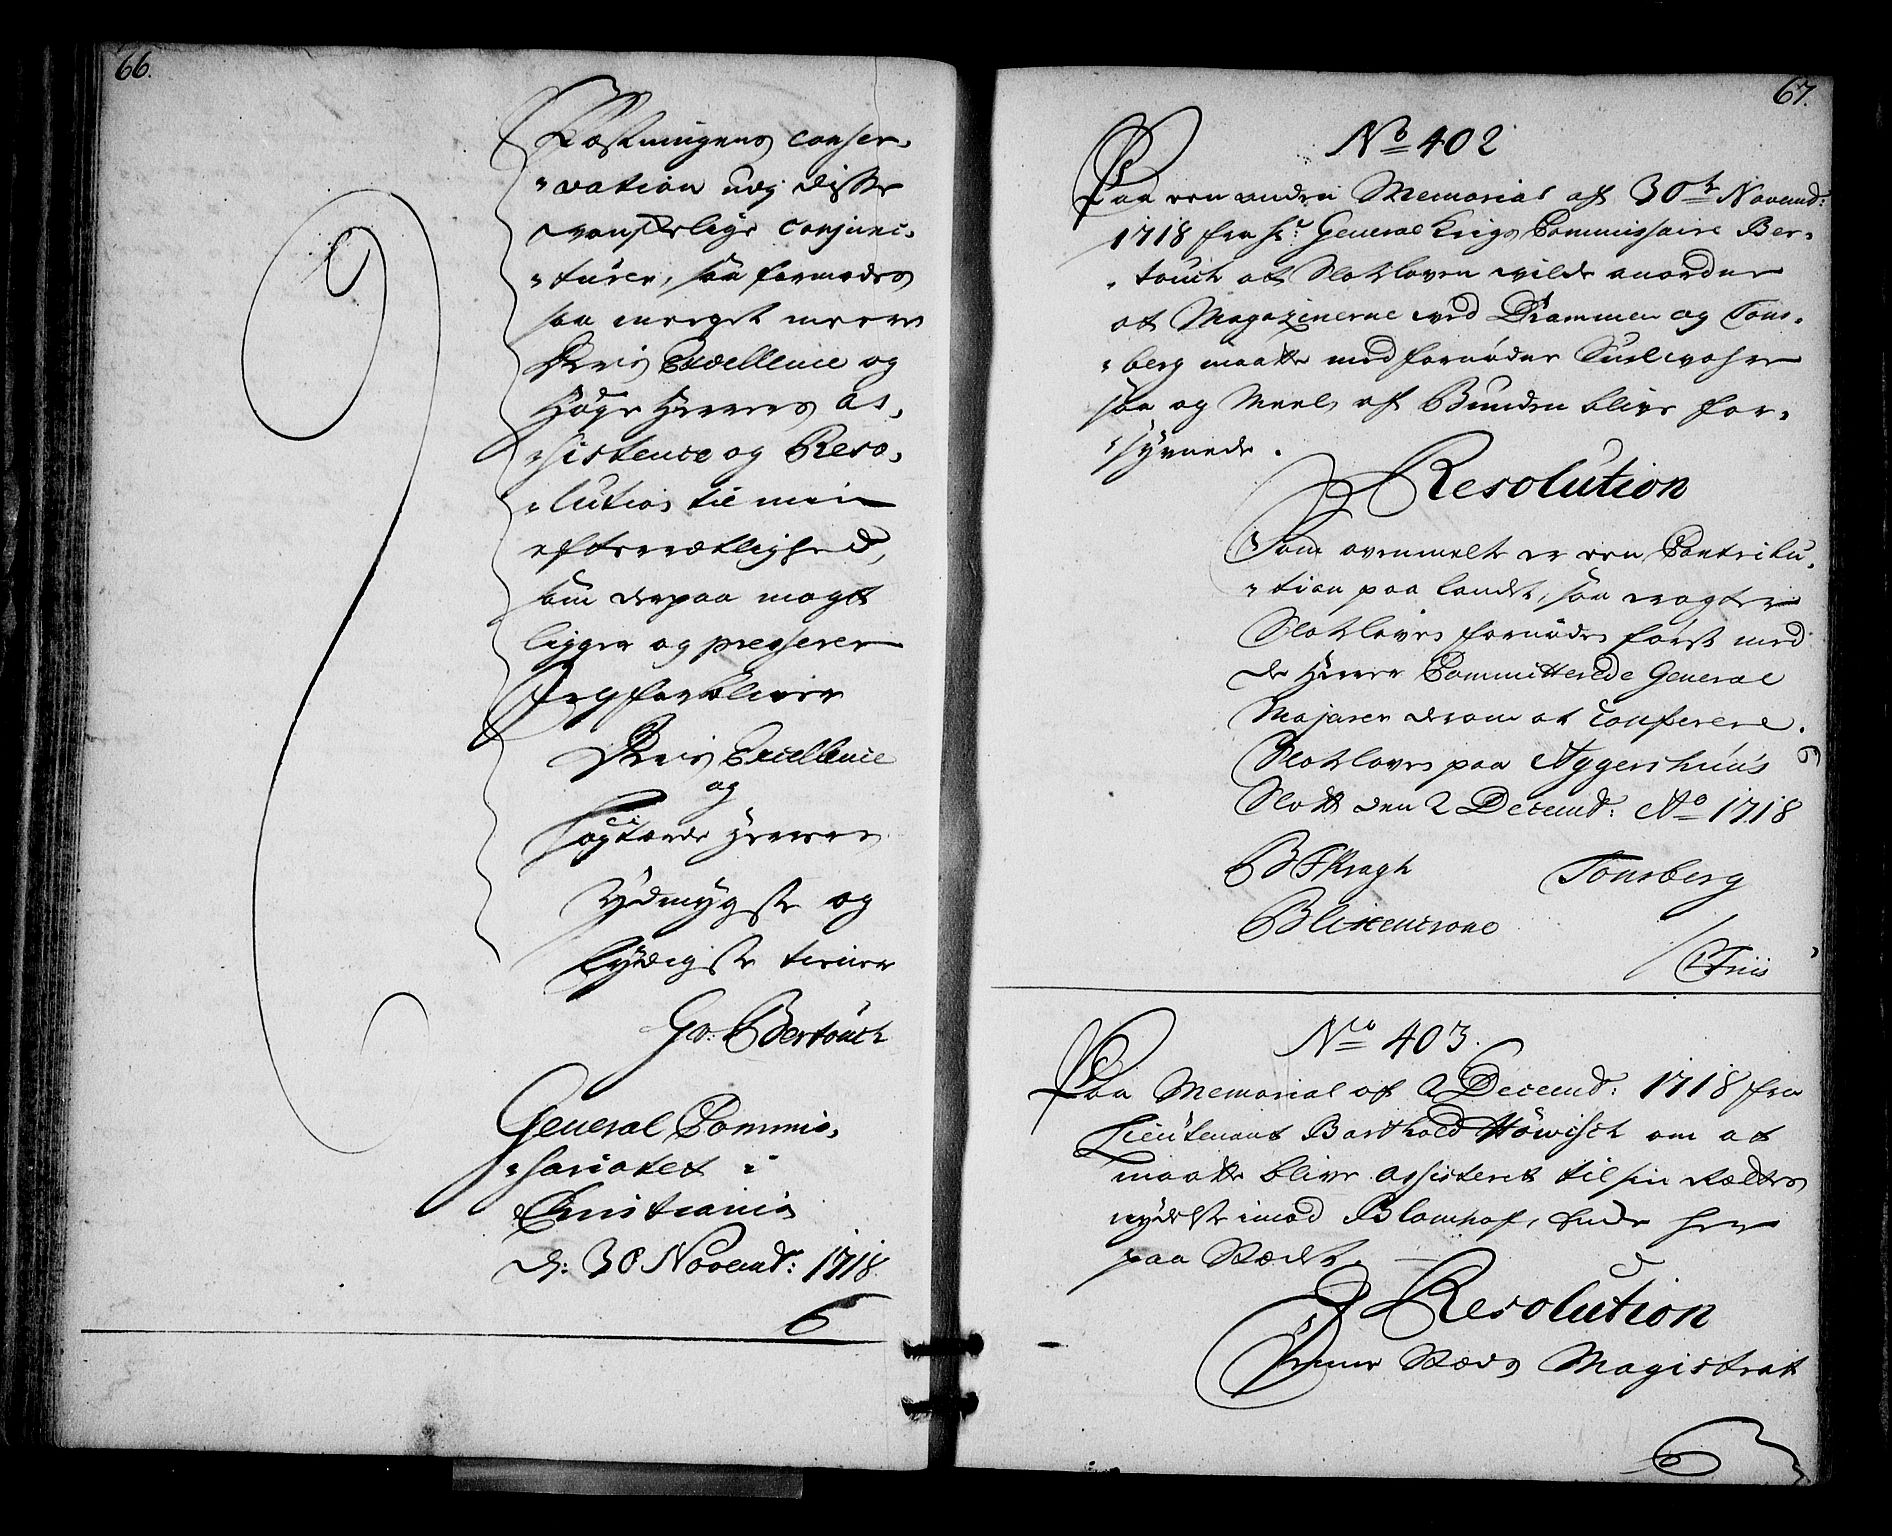 66.
Fæstningens conser-
vation udj disse
vanskelige conjunc-
turer, saa formodes
saa meeget meere
Deris Excellence og
Høye Herrers as-
sistence og Reso-
lution til min
efterrætlighed,
som derpaa magt
ligger og presserer
Jeg forbliver
Deris Excellence
og
høgtærede Herrers
Ydmygste og
lydigste tiener
Bertouch
General Commis-
sariatet i
Christiania
d: 30 Novemb: 1718.
67.
No 402
Paa een anden Memorial af 30te Novemb:
1718 fra Hr: General Krigs Commissaire Ber-
touch at Slotsloven wilde anordne
at Magazinerne ved Drammen og Tons-
berg maatte med fornøden Furlivahre
saa og Meel, af Bunden blive for-
synede.
Resolution
Som ovenmelte er een Contribu-
tion paa landet, saa eragter
Slotsloven fornøden først med
de Herrer Committerede General
Majorer derom at conferere.
Slotsloven paa Aggershuus
Slott den 2 Decemb: Ao 1718
Kragh Tonsberg
Blixencrone
Friis
No 403.
Paa Memorial af 2 Decemb: 1718 fra
Lieutenant Barthold Höwisch om at
maatte blive assisteret til sin Rættes
nydelse imod Blomhof, her
paa Stædet.
Resolution
Stæds Magistrat